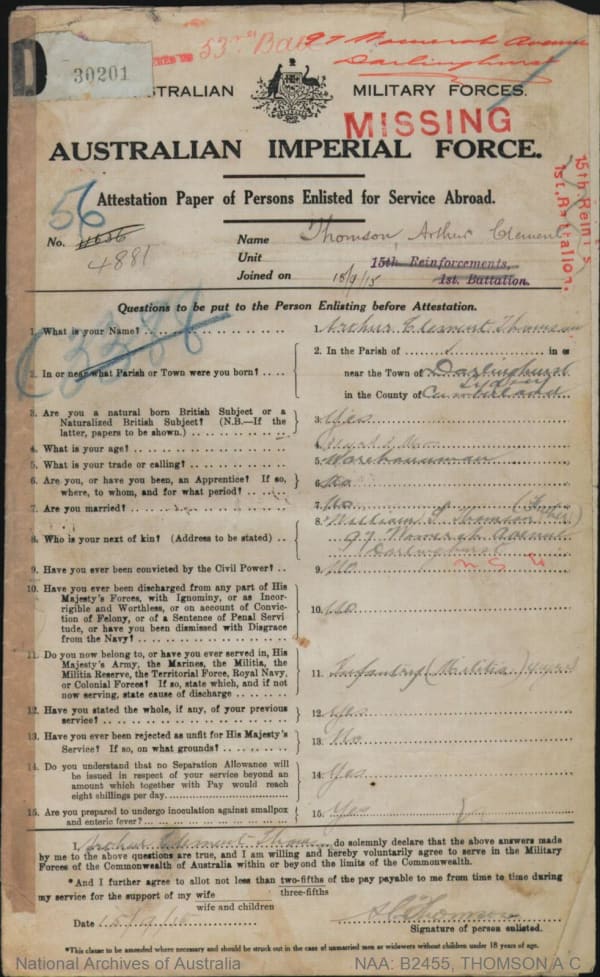 30201
53rd Batt
97 Womerah Avenue
Darlinghurst
AUSTRALIAN MILITARY FORCES.
MISSING
AUSTRALIAN IMPERIAL FORCE.
15th Reint's
1st. Battalion.
Attestation Paper of Persons Enlisted for Service Abroad.
56
No. 4636
4881
Name Thomson, Arthur Clement
Unit 15th Reinforcements,
1st. Battalion.
Joined on 15/9/15
Questions to be put to the Person Enlisting before Attestation.
1. What is your Name? 1. Arthur Clement Thomson
2. In or near what Parish or Town were you born? 2. In the Parish of in or
near the Town of Darlinghurst
Sydney
in the County of Cumberland
3. Are you a natural born British Subject or a
Naturalized British Subject? (N.B.—If the
latter, papers to be shown.) 3. Yes
4. What is your age?
5. What is your trade or calling? 5. Warehouseman
6. Are you, or have you been, an Apprentice? If so,
where, to whom, and for what period? 6. No
7. Are you married? 7. No
8. Who is your next of kin? (Address to be stated) 8. William S Thomson (Father)
97 Womerah Avenue
Darlinghurst
N S W
9. Have you ever been convicted by the Civil Power? 9. No
10. Have you ever been discharged from any part of His
Majesty's Forces, with Ignominy, or as Incor-
rigible and Worthless, or on account of Convic-
tion of Felony, or of a Sentence of Penal Servi
tude, or have you been dismissed with Disgrace
from the Navy? 10. No
11. Do you now belong to, or have you ever served in, His
Majesty's Army, the Marines, the Militia, the
Militia Reserve, the Territorial Force, Royal Navy,
or Colonial Forces? If so, state which, and if not
now serving, state cause of discharge 11. Infantry (Militia) 4 years
12. Have you stated the whole, if any, of your previous
service? 12. Yes
13. Have you ever been rejected as unfit for His Majesty's
Service? If so, on what grounds? 13. No
14. Do you understand that no Separation Allowance will
be issued in respect of your service beyond an
amount which together with Pay would reach
eight shillings per day. 14. Yes
15. Are you prepared to undergo inoculation against smallpox
and enteric fever? 15. Yes
I, Arthur Clement Thomson do solemnly declare that the above answers made
by me to the above questions are true, and I am willing and hereby voluntarily agree to serve in the Military
Forces of the Commonwealth of Australia within or beyond the limits of the Commonwealth.
*And I further agree to allot not less than two-fifths of the pay payable to me from time to time during
three-fifths
my service for the support of my wife
wife and children
Date 15/9/15 A C Thomson
Signature of person enlisted.
*This clause to be amended where necessary and should be struck out in the case of unmarried men or widowers without children under 18 years of age.
National Archives of Australia NAA: B2455, THOMSON A C